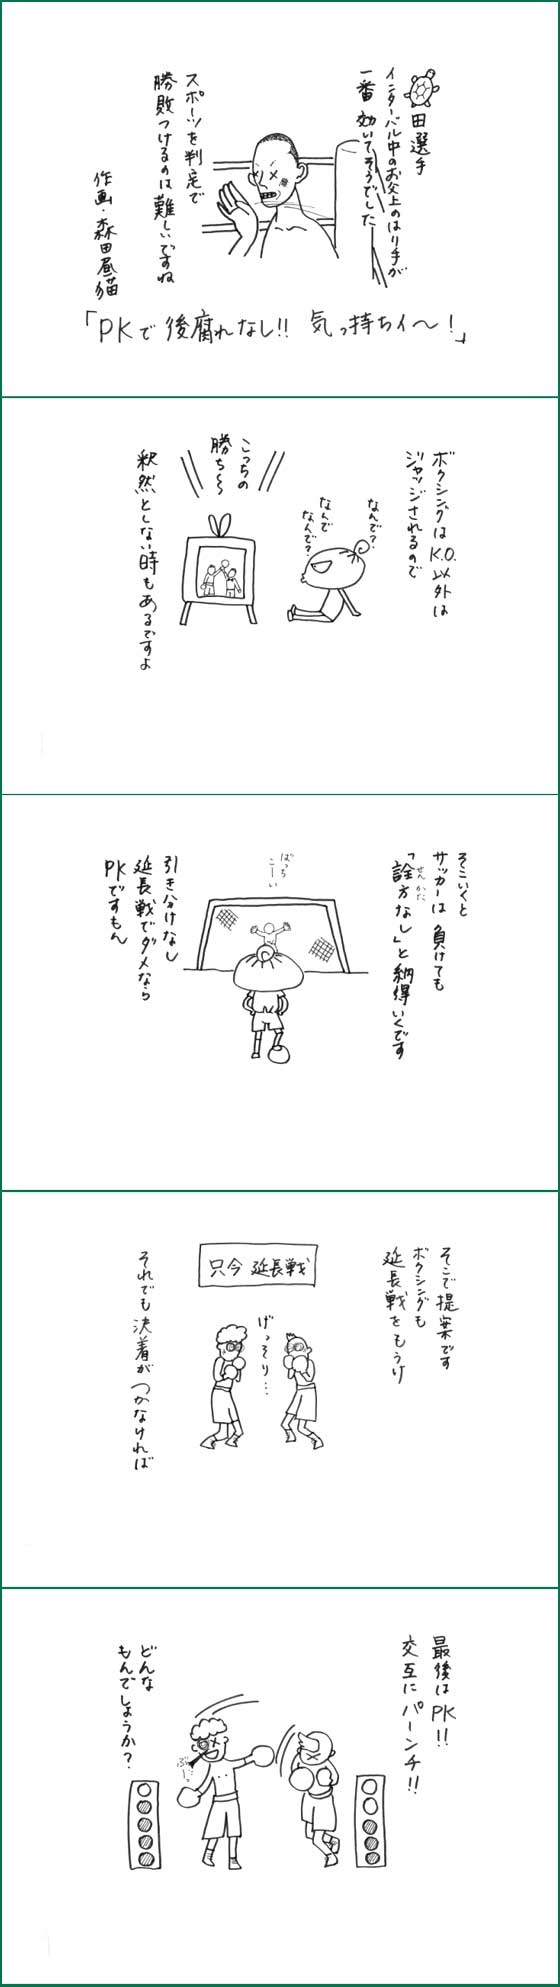 田選手
インターバル中のお父上のはり手が
一番 効いてそうでした
スポーツを判定で
勝敗つけるのは難しいですね
作画・森田昼猫
「PKで後腐れなし!! 気っ持ちイ〜!」
ボクシングはK.O.以外は
ジャッジされるので
なんで?
なんで
なんで?
こっちの
勝ち〜
釈然としない時もあるですよ
そこいくと
サッカーは 負けても
「詮方なし」と納得いくです
せんかた
ばっち
こーい
引き分けなし
延長戦でダメなら
PKですもん
そこで提案です
ボクシングも
延長戦をもうけ
只今 延長戦
げっそり…
それでも決着がつかなければ
最後はPK!!
交互にパーンチ!!
ぶしー
どんな
もんでしょうか?